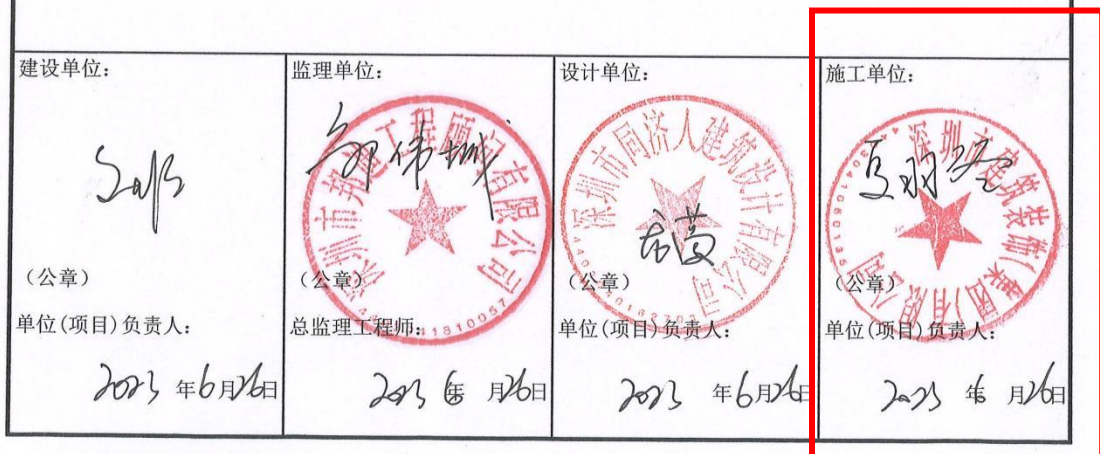 建设单位:
监理单位:
设计单位:
施工单位:
邹伟城
夏羽
龙薇
深圳市邦迪工程顾问有限公司
深圳市同济人建筑设计有限公司
深圳市建筑装饰(集团)有限公司
(公章)
(公章)
(公章)
(公章)
单位(项目)负责人:
总监理工程师:
单位(项目)负责人:
单位(项目)负责人:
2023 年6月26日
2023 6 月26日
2023 年6月26日
2023 6 月26日